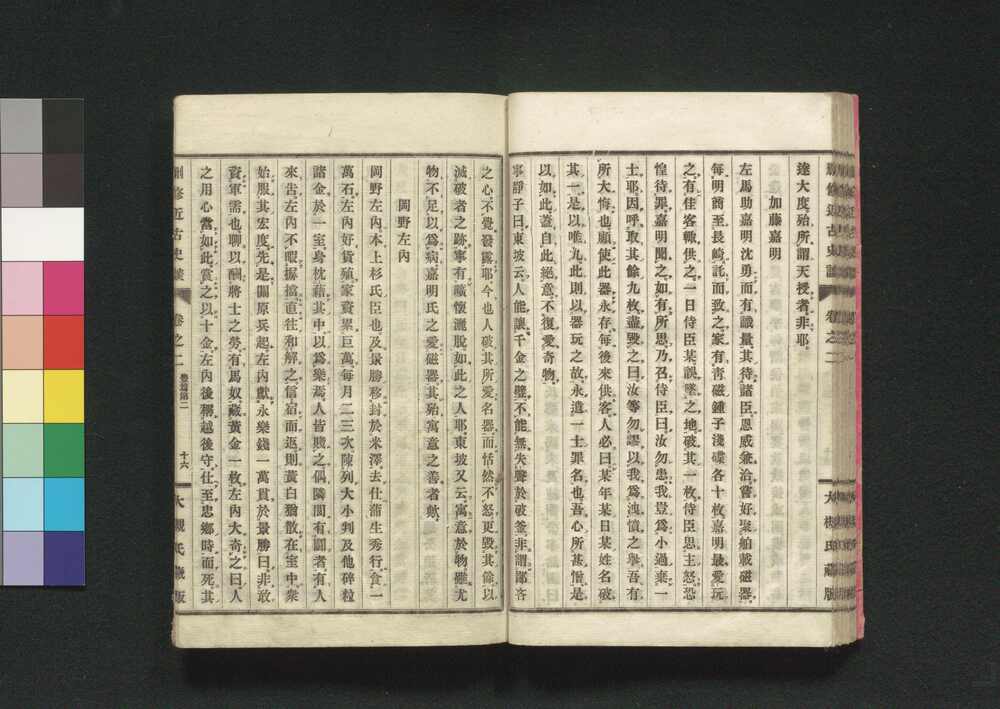 達大度殆所謂天授者非耶
加藤嘉明
左馬助嘉明沈勇而有識量其待諸臣恩威兼洽嘗好聚舶載磁器
每明商至長崎託而致之家有靑磁鍾子淺碟各十枚嘉明最愛玩
之有佳客輙供之一日侍臣某誤墜之地破其一枚侍臣思主怒恐
惶待罪嘉明聞之如有所思乃召侍臣曰汝勿患我豈爲小過棄一
士耶因呼取其餘九枚盡毀之曰汝等勿謬以我爲洩憤之擧吾有
所大悔也顧使此器永存每後來供客人必曰某年某日某姓名破
其一是以唯九此則以器玩之故永遺一士罪名也吾心所甚惜是
以如此蓋自此絕意不復愛奇物
事靜子曰東坡云人能讓千金之璧不能無失聲於破釜非謂鄙吝
之心不覺發露耶今也人破其所愛名器而恬然不怒更毀其餘以
滅破者之跡寧有襟懷灑脫如此之人耶東坡又云寓意於物雖尤
物不足以爲病嘉明氏之愛磁器其殆寓意之善者歟
岡野左內
岡野左內本上杉氏臣也及景勝移封於米澤去仕蒲生秀行食一
萬石左內好貨殖家資累巨萬每月二三次陳列大小判及他碎粒
諸金於一室身枕藉其中以爲樂焉人皆賤之偶隣閭有鬪者有人
來吿左內不暇握擋直往和解之信宿而返則黃白猶散在室中衆
始服其宏度先是關原兵起左內獻永樂錢一萬貫於景勝曰非敢
資軍需也聊以酬將士之勞有馬奴藏黃金一枚左內大奇之曰人
之用心當如此賞之以十金左內後稱越後守仕至忠鄕時而死其
刪修近古史談
卷之二
豊篇第二
十六
大槻氏藏版